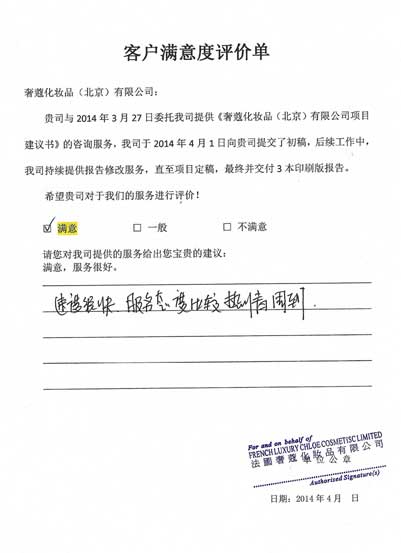 客户满意度评价单
奢蔻化妆品（北京）有限公司：
贵司与 2014 年 3 月 27 日委托我司提供《奢蔻化妆品（北京）有限公司项目
建议书》的咨询服务，我司于 2014 年 4 月 1 日向贵司提交了初稿，后续工作中，
我司持续提供报告修改服务，直至项目定稿，最终并交付 3 本印刷版报告。
希望贵司对于我们的服务进行评价！
☑ 满意 □ 一般 □ 不满意
请您对我司提供的服务给出您宝贵的建议：
满意，服务很好。
速度很快，服务态度比较热情周到.
For and on behalf of
FRENCH LUXURY CHLOE COSMETISC LIMITED
法國奢蔻化妝品有限公司
單位公章
Authorised Signature(s)
日期：2014 年 4 月 日